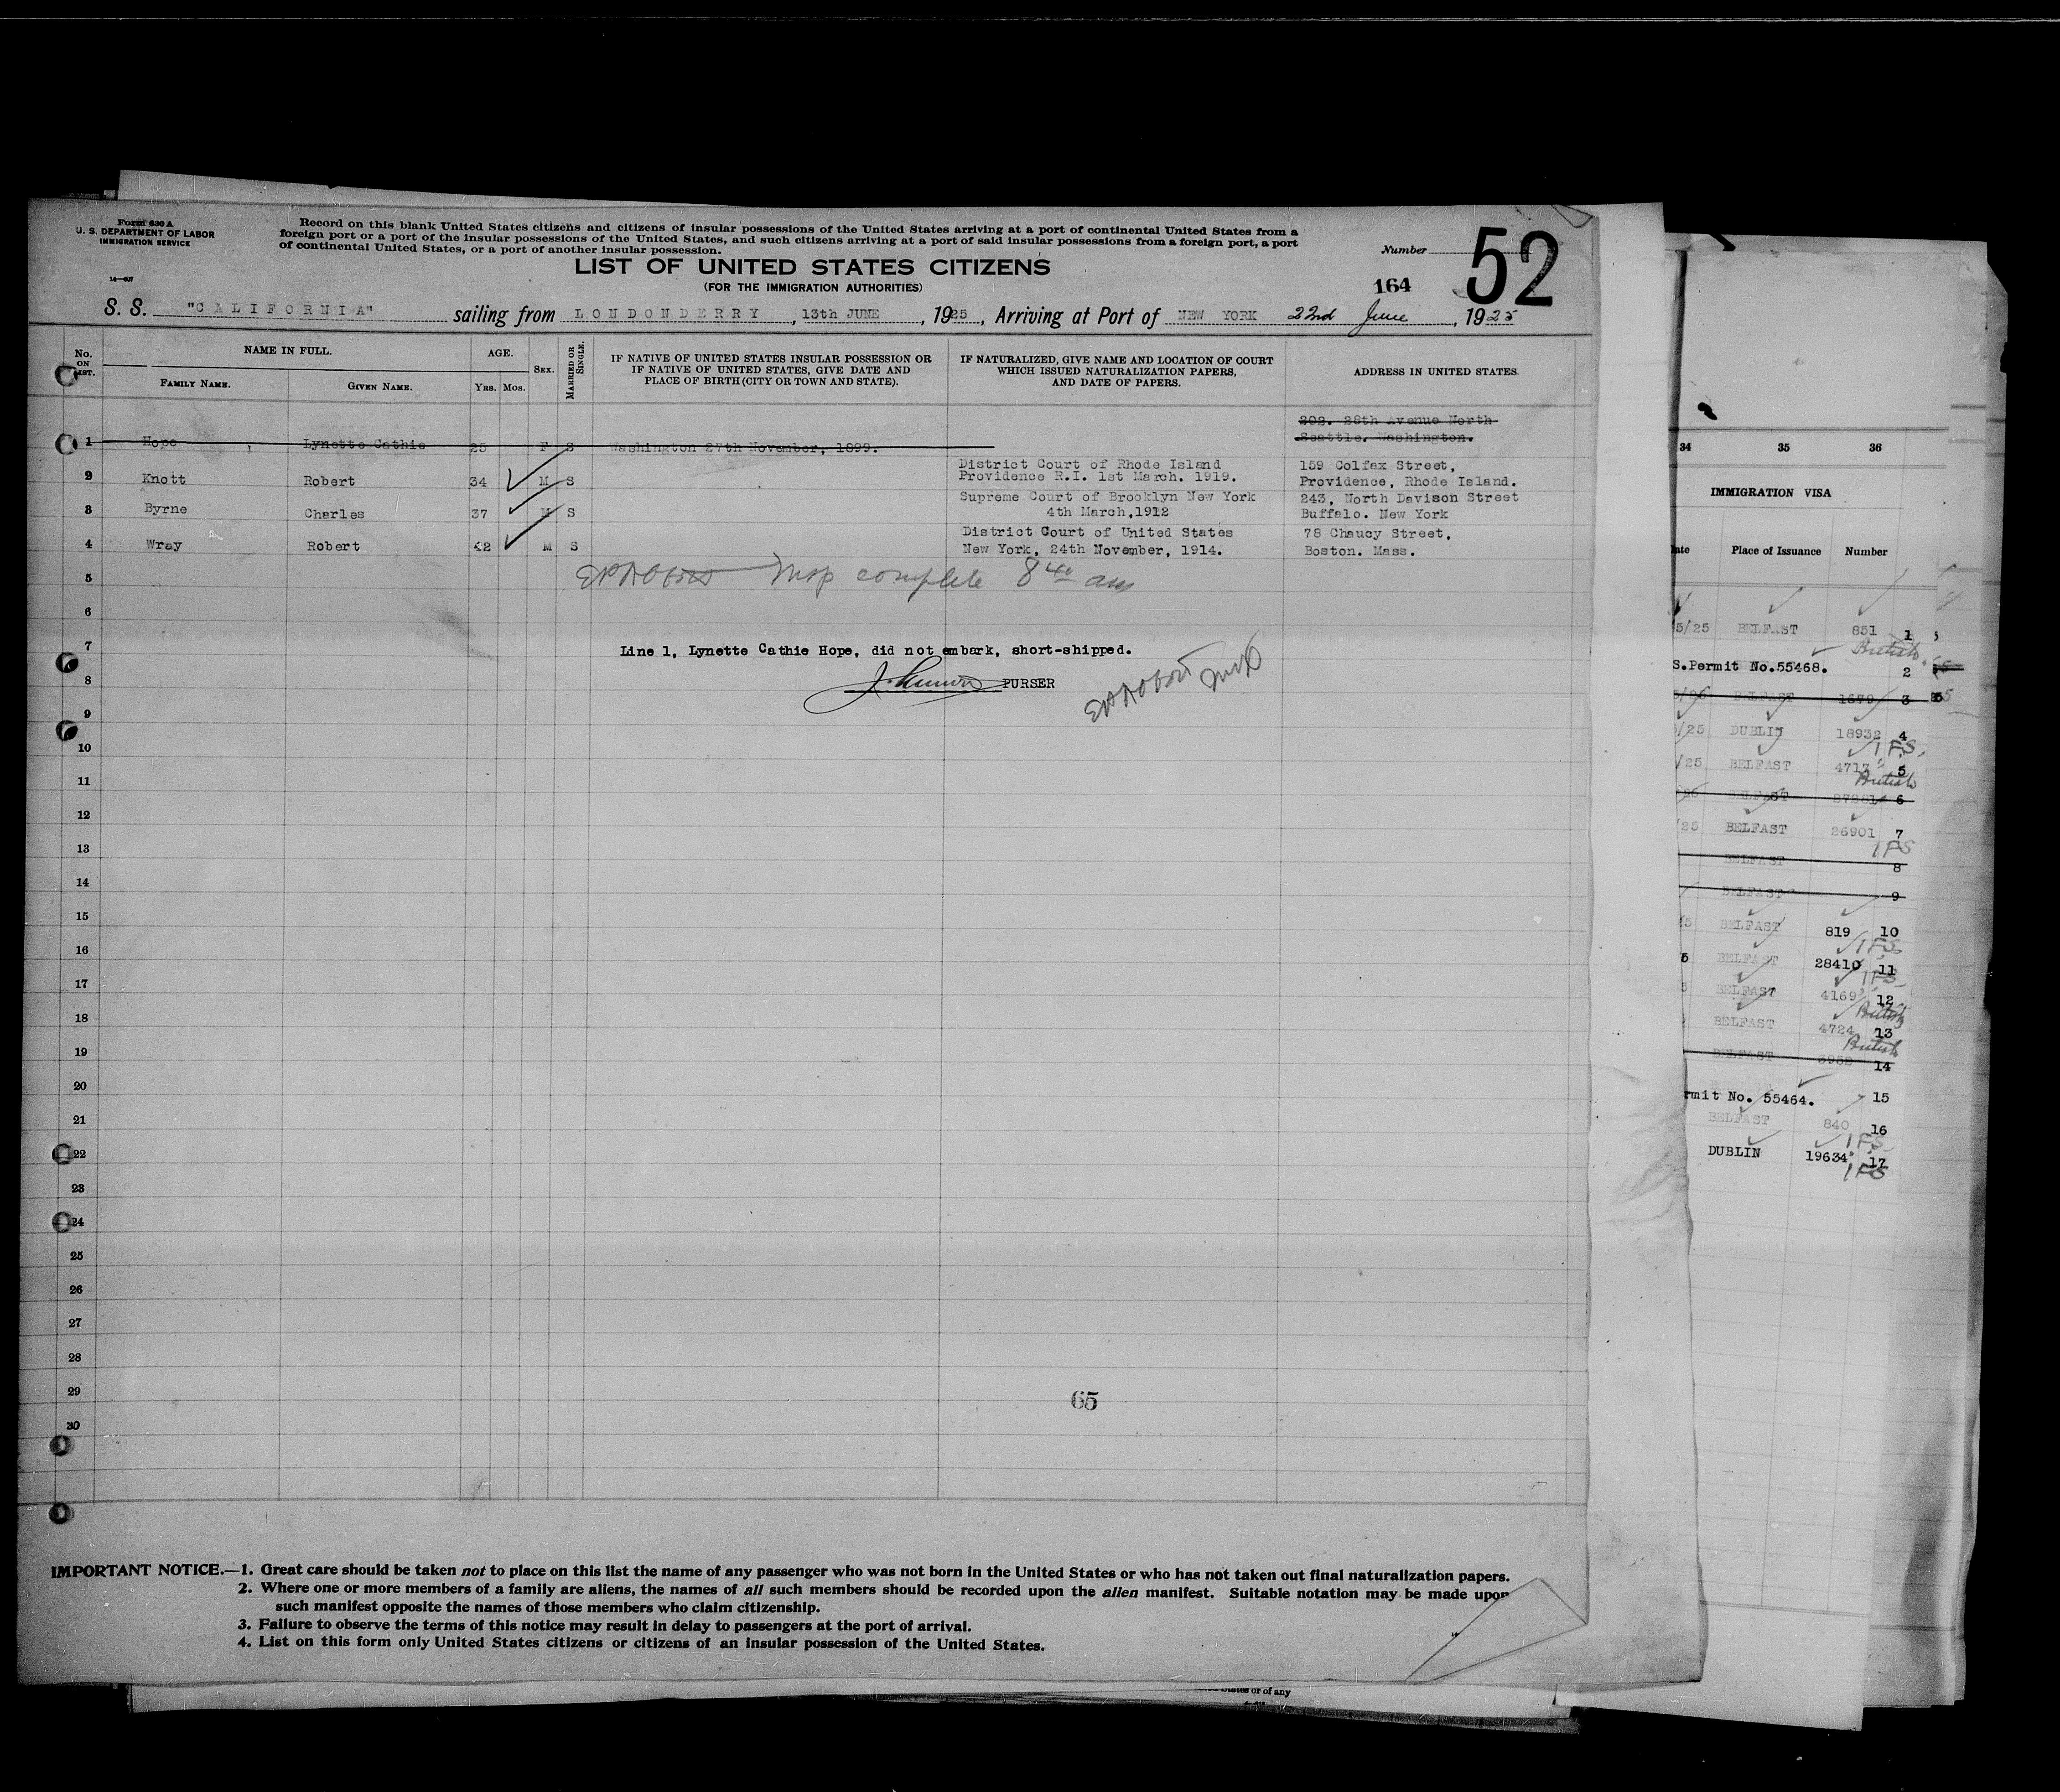 Form 630 A
U. S. DEPARTMENT OF LABOR
IMMIGRATION SERVICE
Record on this blank United States citizens and citizens of insular possessions of the United States arriving at a port of continental United States from a
foreign port or a port of the insular possessions of the United States, and such citizens arriving at a port of said insular possessions from a foreign port, a port
of continental United States, or a port of another insular possession.
Number
52
LIST OF UNITED STATES CITIZENS
(FOR THE IMMIGRATION AUTHORITIES)
164
S. S. "CALIFORNIA" sailing from LONDONDERRY, 13th JUNE, 1925, Arriving at Port of NEW YORK 22nd June, 1925
No. ON LIST.
NAME IN FULL.
FAMILY NAME.
GIVEN NAME.
AGE.
YRS. MOS.
SEX.
MARRIED OR SINGLE.
IF NATIVE OF UNITED STATES INSULAR POSSESSION OR
IF NATIVE OF UNITED STATES, GIVE DATE AND
PLACE OF BIRTH (CITY OR TOWN AND STATE).
IF NATURALIZED, GIVE NAME AND LOCATION OF COURT
WHICH ISSUED NATURALIZATION PAPERS,
AND DATE OF PAPERS.
ADDRESS IN UNITED STATES.
202. 28th Avenue North
1 Hope, Lynette Cathie 25 F S Washington 27th November, 1899. Seattle. Washington.
District Court of Rhode Island 159 Colfax Street,
2 Knott Robert 34 M S Providence R.I. 1st March. 1919. Providence, Rhode Island.
Supreme Court of Brooklyn New York 243, North Davison Street
3 Byrne Charles 37 M S 4th March,1912 Buffalo. New York
District Court of United States 78 Chaucy Street,
4 Wray Robert 42 M S New York, 24th November, 1914. Boston. Mass.
5 complete 8 40 am
6
7 Line 1, Lynette Cathie Hope, did not embark, short-shipped.
8 PURSER
9
10
11
12
13
14
15
16
17
18
19
20
21
22
23
24
25
26
27
28
29
65
30
IMPORTANT NOTICE.—1. Great care should be taken not to place on this list the name of any passenger who was not born in the United States or who has not taken out final naturalization papers.
2. Where one or more members of a family are aliens, the names of all such members should be recorded upon the alien manifest. Suitable notation may be made upon
such manifest opposite the names of those members who claim citizenship.
3. Failure to observe the terms of this notice may result in delay to passengers at the port of arrival.
4. List on this form only United States citizens or citizens of an insular possession of the United States.
States or of any
34 35 36
IMMIGRATION VISA
Place of Issuance Number
5/25 BELFAST 851 1
British
S.Permit No.55468. 2
BELFAST 1679 3
/25 DUBLIN 18932 4
IFS
/25 BELFAST 4717 5
British
BELFAST 6
/25 BELFAST 26901 7
IFS
BELFAST 8
BELFAST 9
BELFAST 819 10
IFS
5 BELFAST 28410 11
IFS
BELFAST 4169 12
British
BELFAST 4724 13
British
BELFAST 14
rmit No. 55464. 15
BELFAST 840 16
IFS
DUBLIN 19634 17
IFS